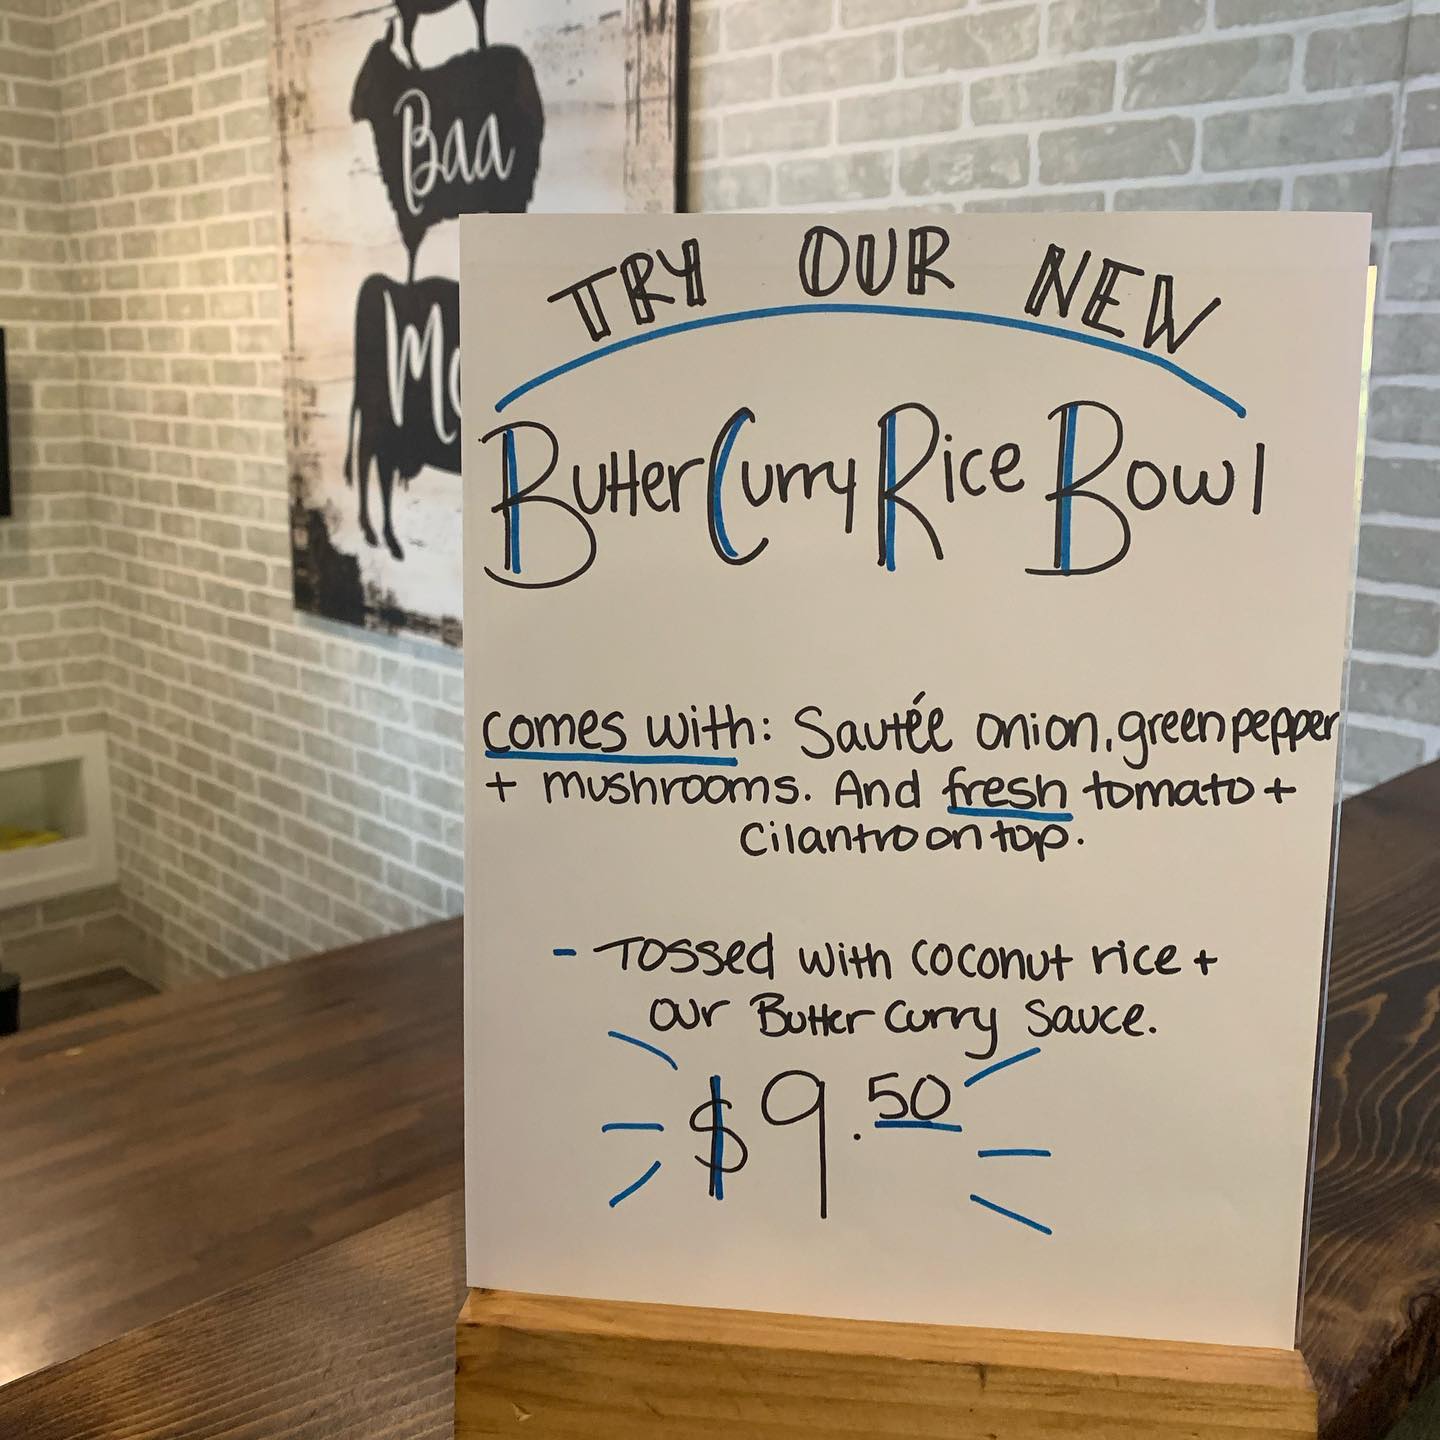 Baa
TRY OUR NEW
Butter Curry Rice Bowl
comes with: Sautéé onion, green pepper
+ mushrooms. And fresh tomato +
Cilantro on top.
- Tossed with coconut rice +
our Butter Curry Sauce.
$9.50